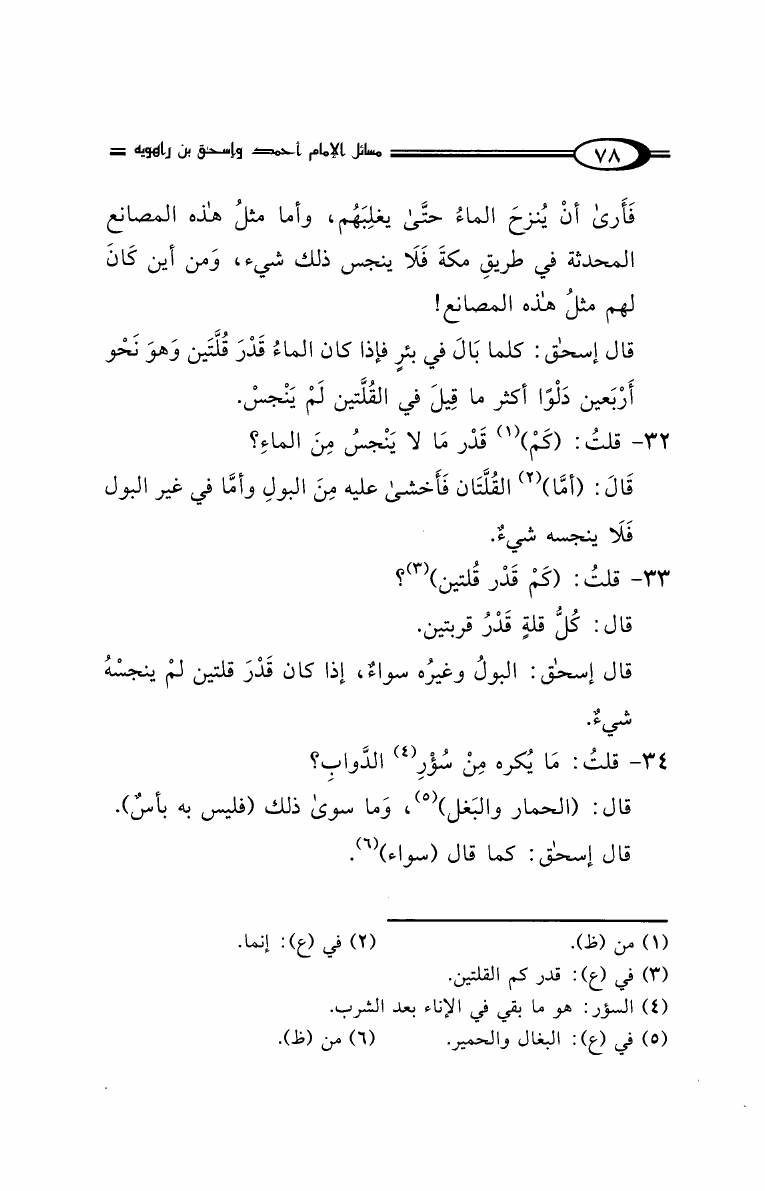 ٧٨ مسائل الإمام أحمد وإسحق بن راهويه
فَأَرىٰ أنْ يُنزحَ الماءُ حتَّىٰ يغلِبَهُم، وأما مثلُ هذٰه المصانع
المحدثة في طريقِ مكةَ فَلَا ينجس ذلك شيء، وَمن أين كَانَ
لهم مثلُ هذٰه المصانع!
قال إسحٰق: كلما بَالَ في بئرٍ فإذا كان الماءُ قَدْرَ قُلَّتَين وَهوَ نَحْو
أَرْبَعين دَلْوًا أكثر ما قِيلَ في القُلَّتين لَمْ يَنْجسْ.
٣٢- قلتُ: (كَمْ)(١) قَدْر مَا لا يَنْجسُ مِنَ الماءِ؟
قَالَ: (أمَّا)(٢) القُلَّتَان فَأَخشىٰ عليه مِنَ البولِ وأمَّا في غير البول
فَلَا ينجسه شيءٌ.
٣٣- قلتُ: (كَمْ قَدْر قُلتين)(٣)؟
قال: كُلُّ قلةٍ قَدْرُ قربتين.
قال إسحٰق: البولُ وغيرُه سواءٌ، إذا كان قَدْرَ قلتين لمْ ينجسْهُ
شيءٌ.
٣٤- قلتُ: مَا يُكره مِنْ سُؤْرِ(٤) الدَّوابِ؟
قال: (الحمار والبَغل)(٥)، وَما سوىٰ ذلك (فليس به بأسٌ).
قال إسحٰق: كما قال (سواء)(٦).
(١) من (ظ). (٢) في (ع): إنما.
(٣) في (ع): قدر كم القلتين.
(٤) السؤر: هو ما بقي في الإناء بعد الشرب.
(٥) في (ع): البغال والحمير. (٦) من (ظ).